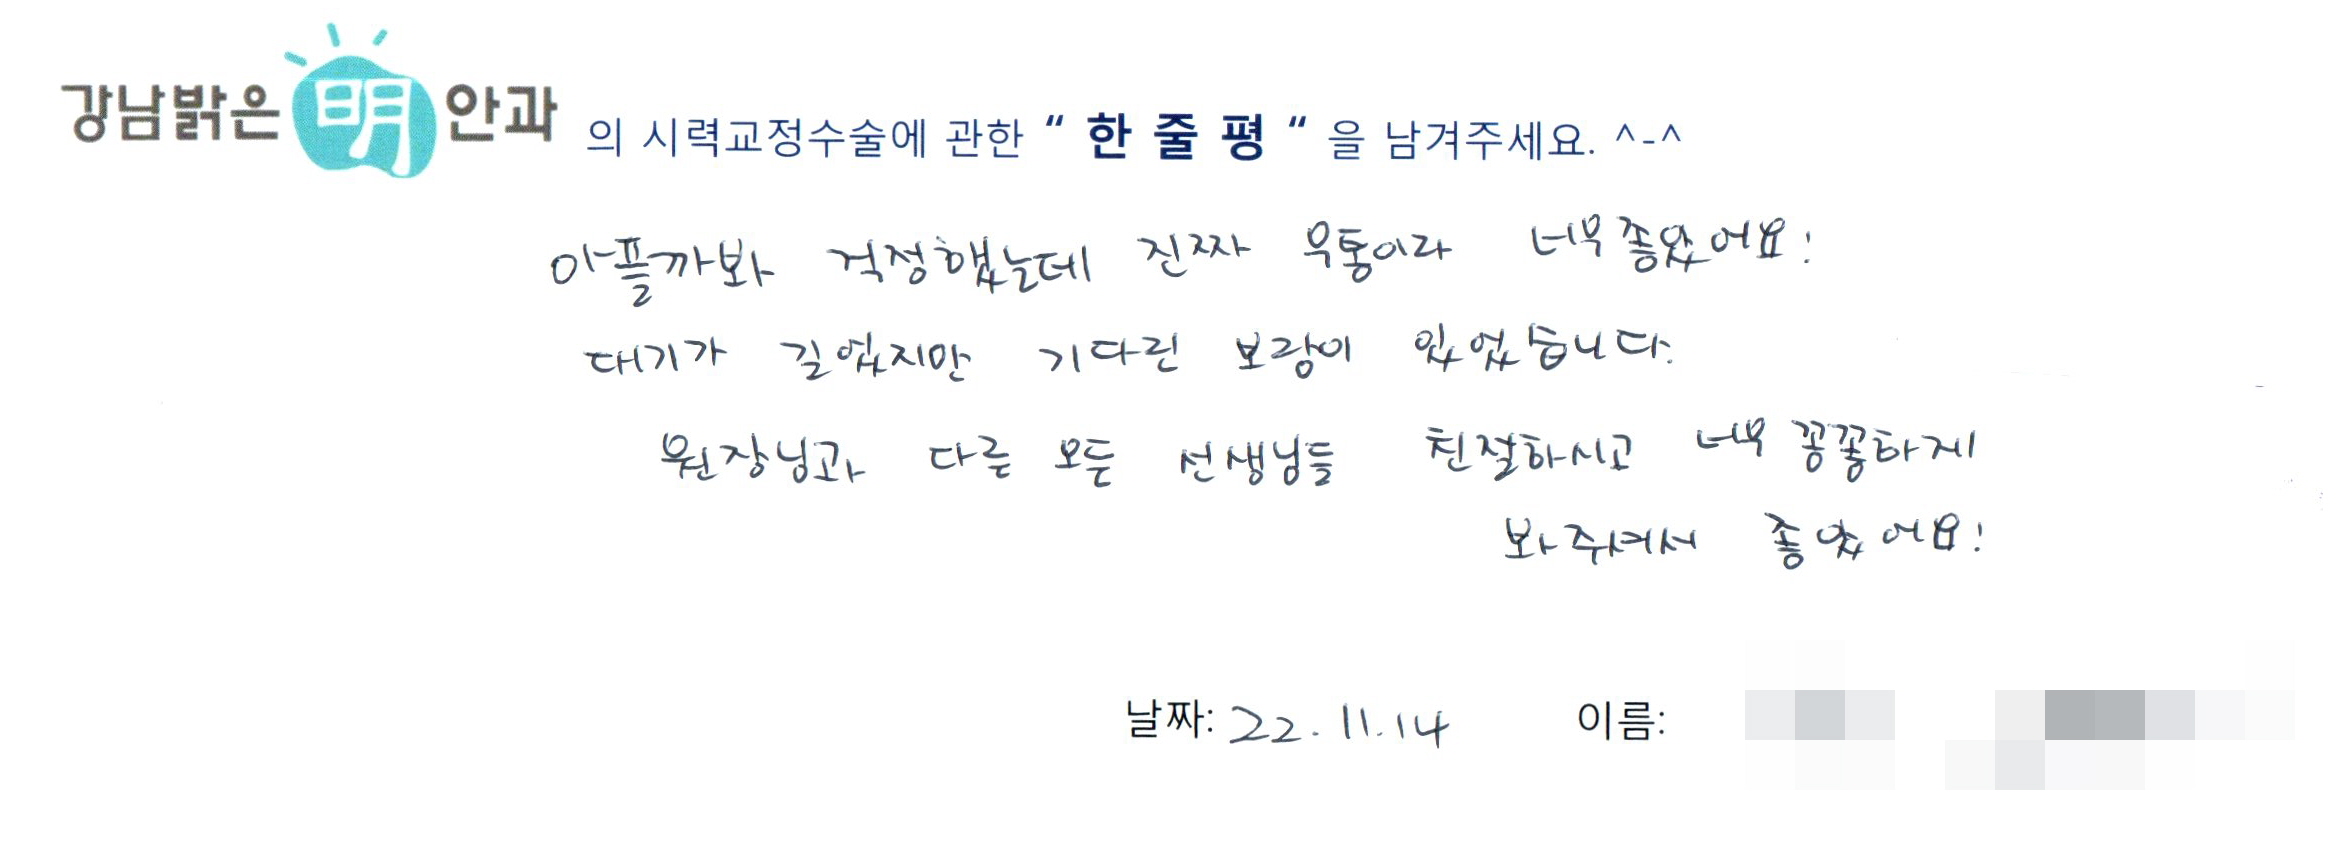 강남밝은明안과 의 시력교정수술에 관한 “ 한 줄 평 “ 을 남겨주세요. ^-^
아플까봐 걱정했는데 진짜 무통이라 너무좋았어요!
대기가 길었지만 기다린 보람이 있었습니다.
원장님과 다른 모든 선생님들 친절하시고 너무 꽁꽁하게
봐주셔서 좋았어요!
날짜: 22.11.14 이름: